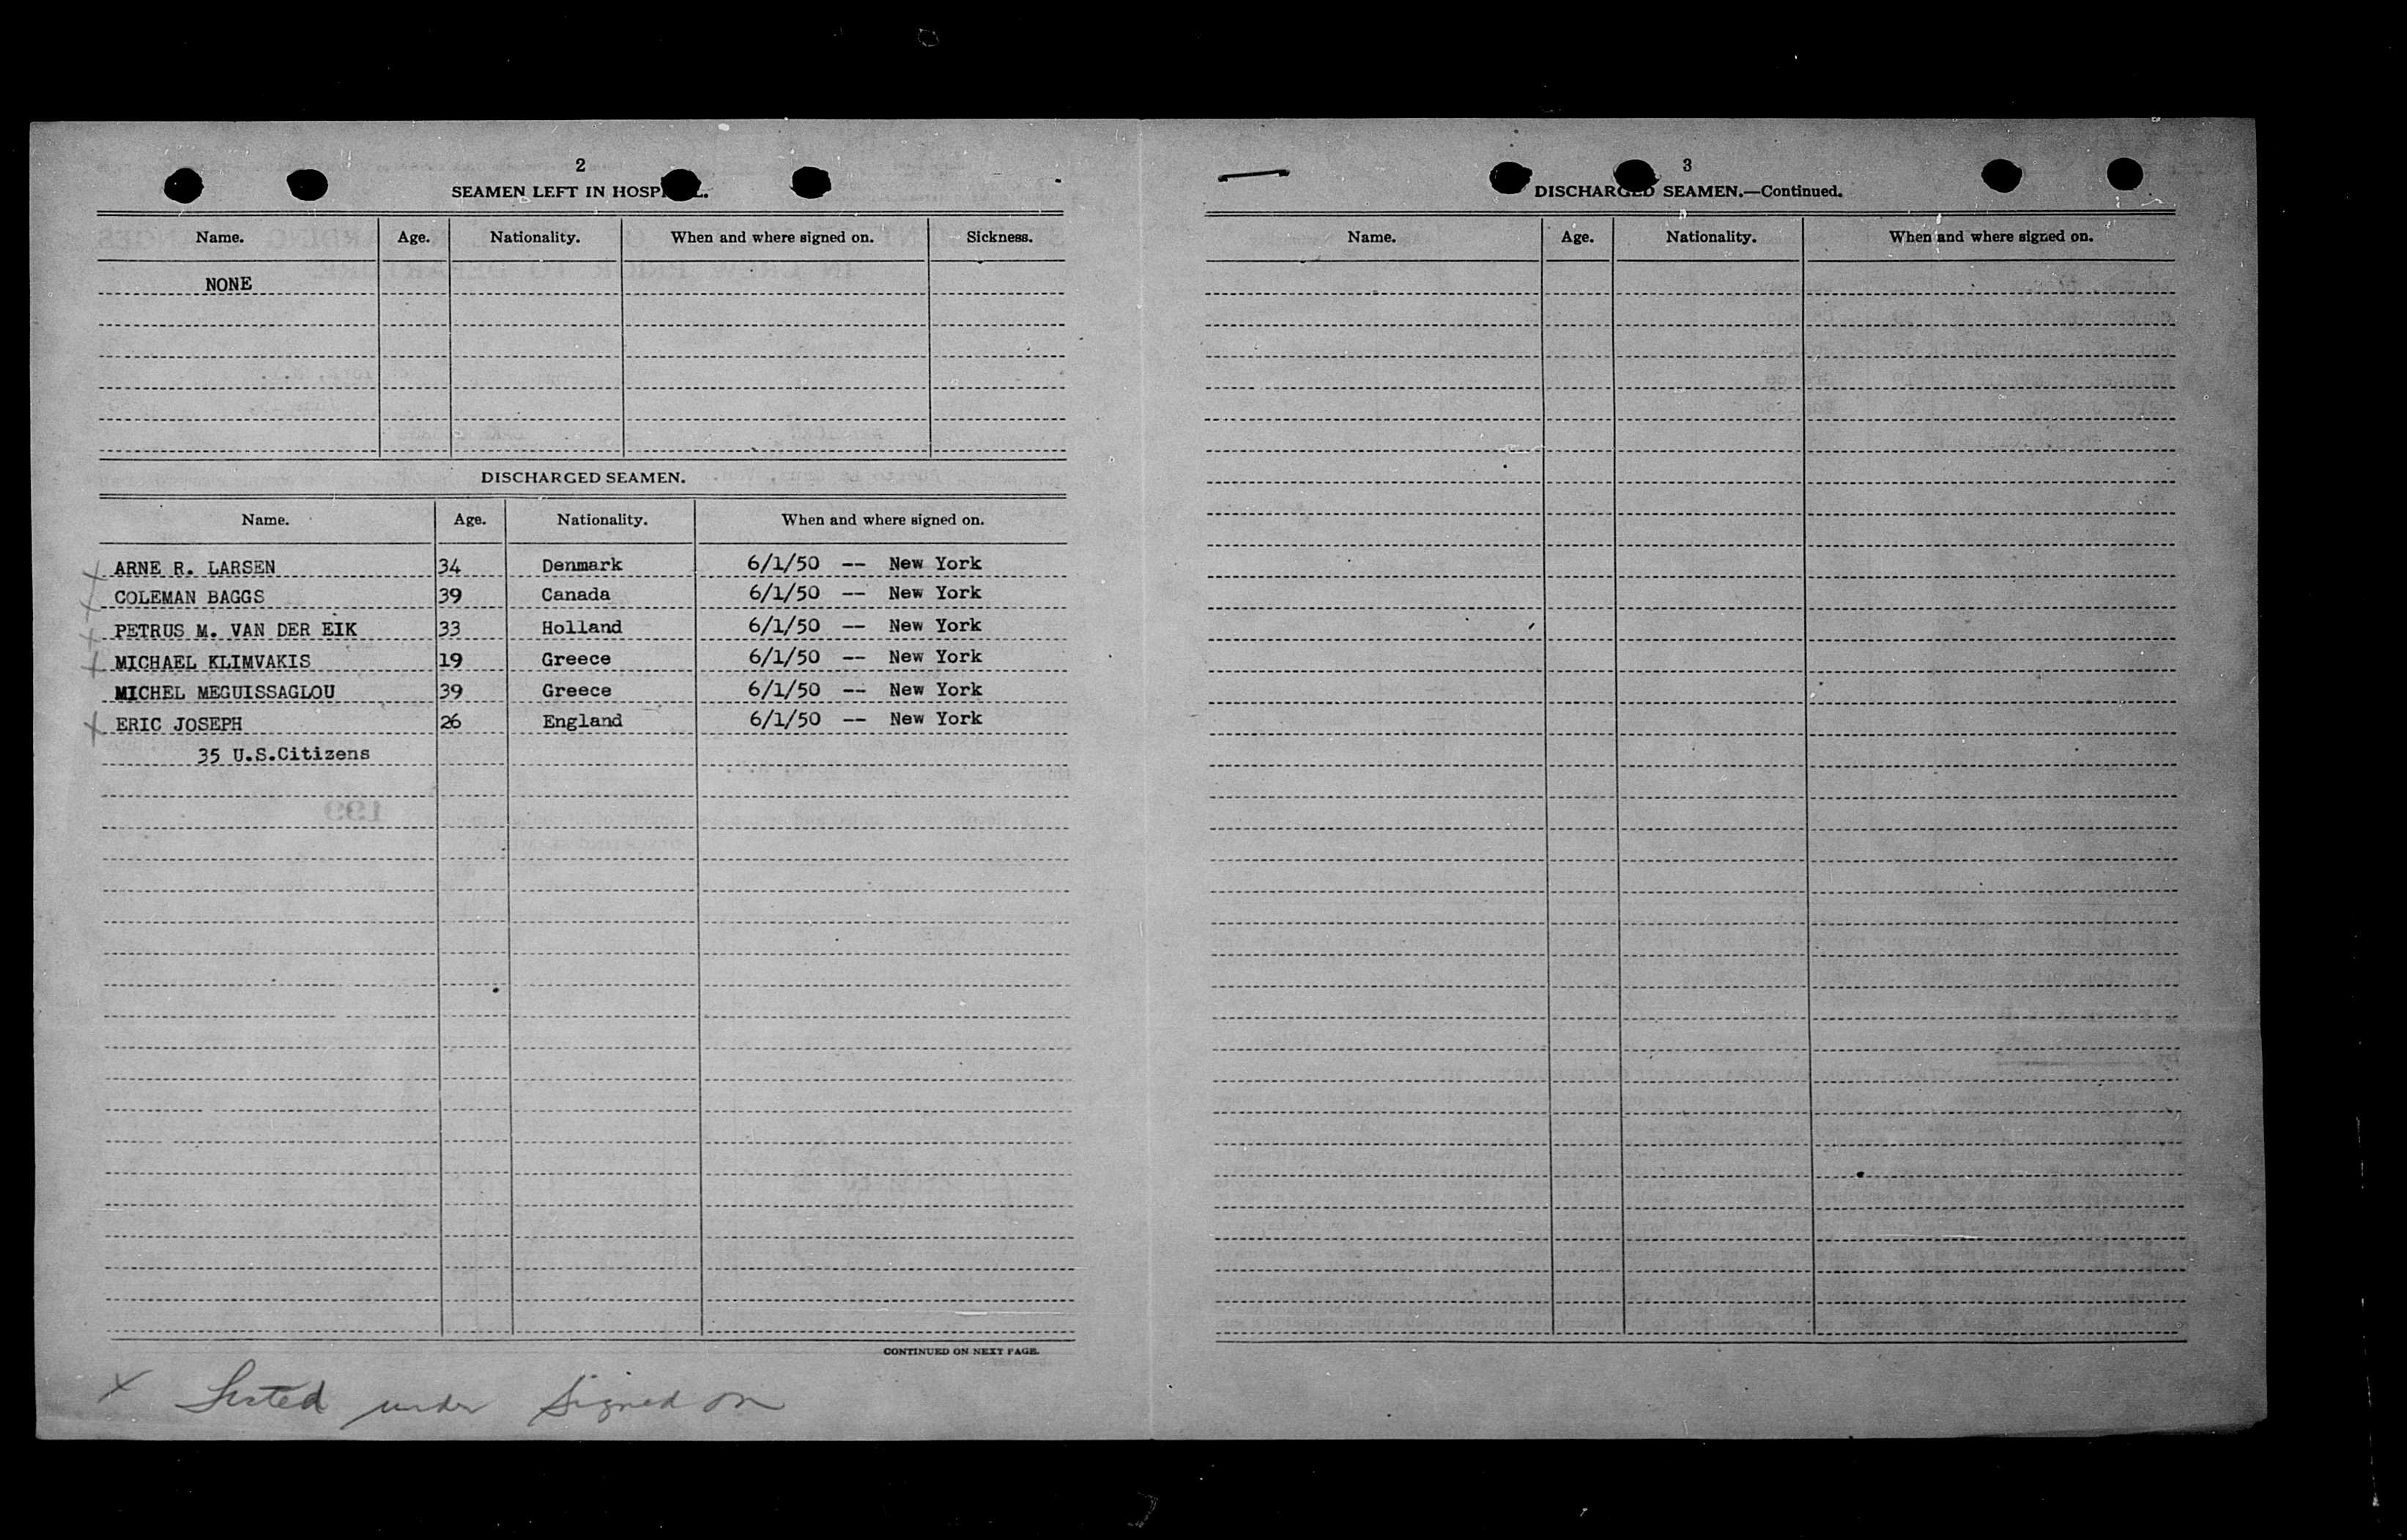 2
SEAMEN LEFT IN HOSP L.
Name. Age. Nationality. When and where signed on. Sickness.
NONE
DISCHARGED SEAMEN.
Name. Age. Nationality. When and where signed on.
ARNE R. LARSEN 34 Denmark 6/1/50 -- New York
COLEMAN BAGGS 39 Canada 6/1/50 -- New York
PETRUS M. VAN DER EIK 33 Holland 6/1/50 -- New York
MICHAEL KLIMVAKIS 19 Greece 6/1/50 -- New York
MICHEL MEGUISSAGLOU 39 Greece 6/1/50 -- New York
ERIC JOSEPH 26 England 6/1/50 -- New York
35 U.S.Citizens
CONTINUED ON NEXT PAGE.
x Listed under Signed on
3
DISCHARGED SEAMEN.—Continued.
Name. Age. Nationality. When and where signed on.